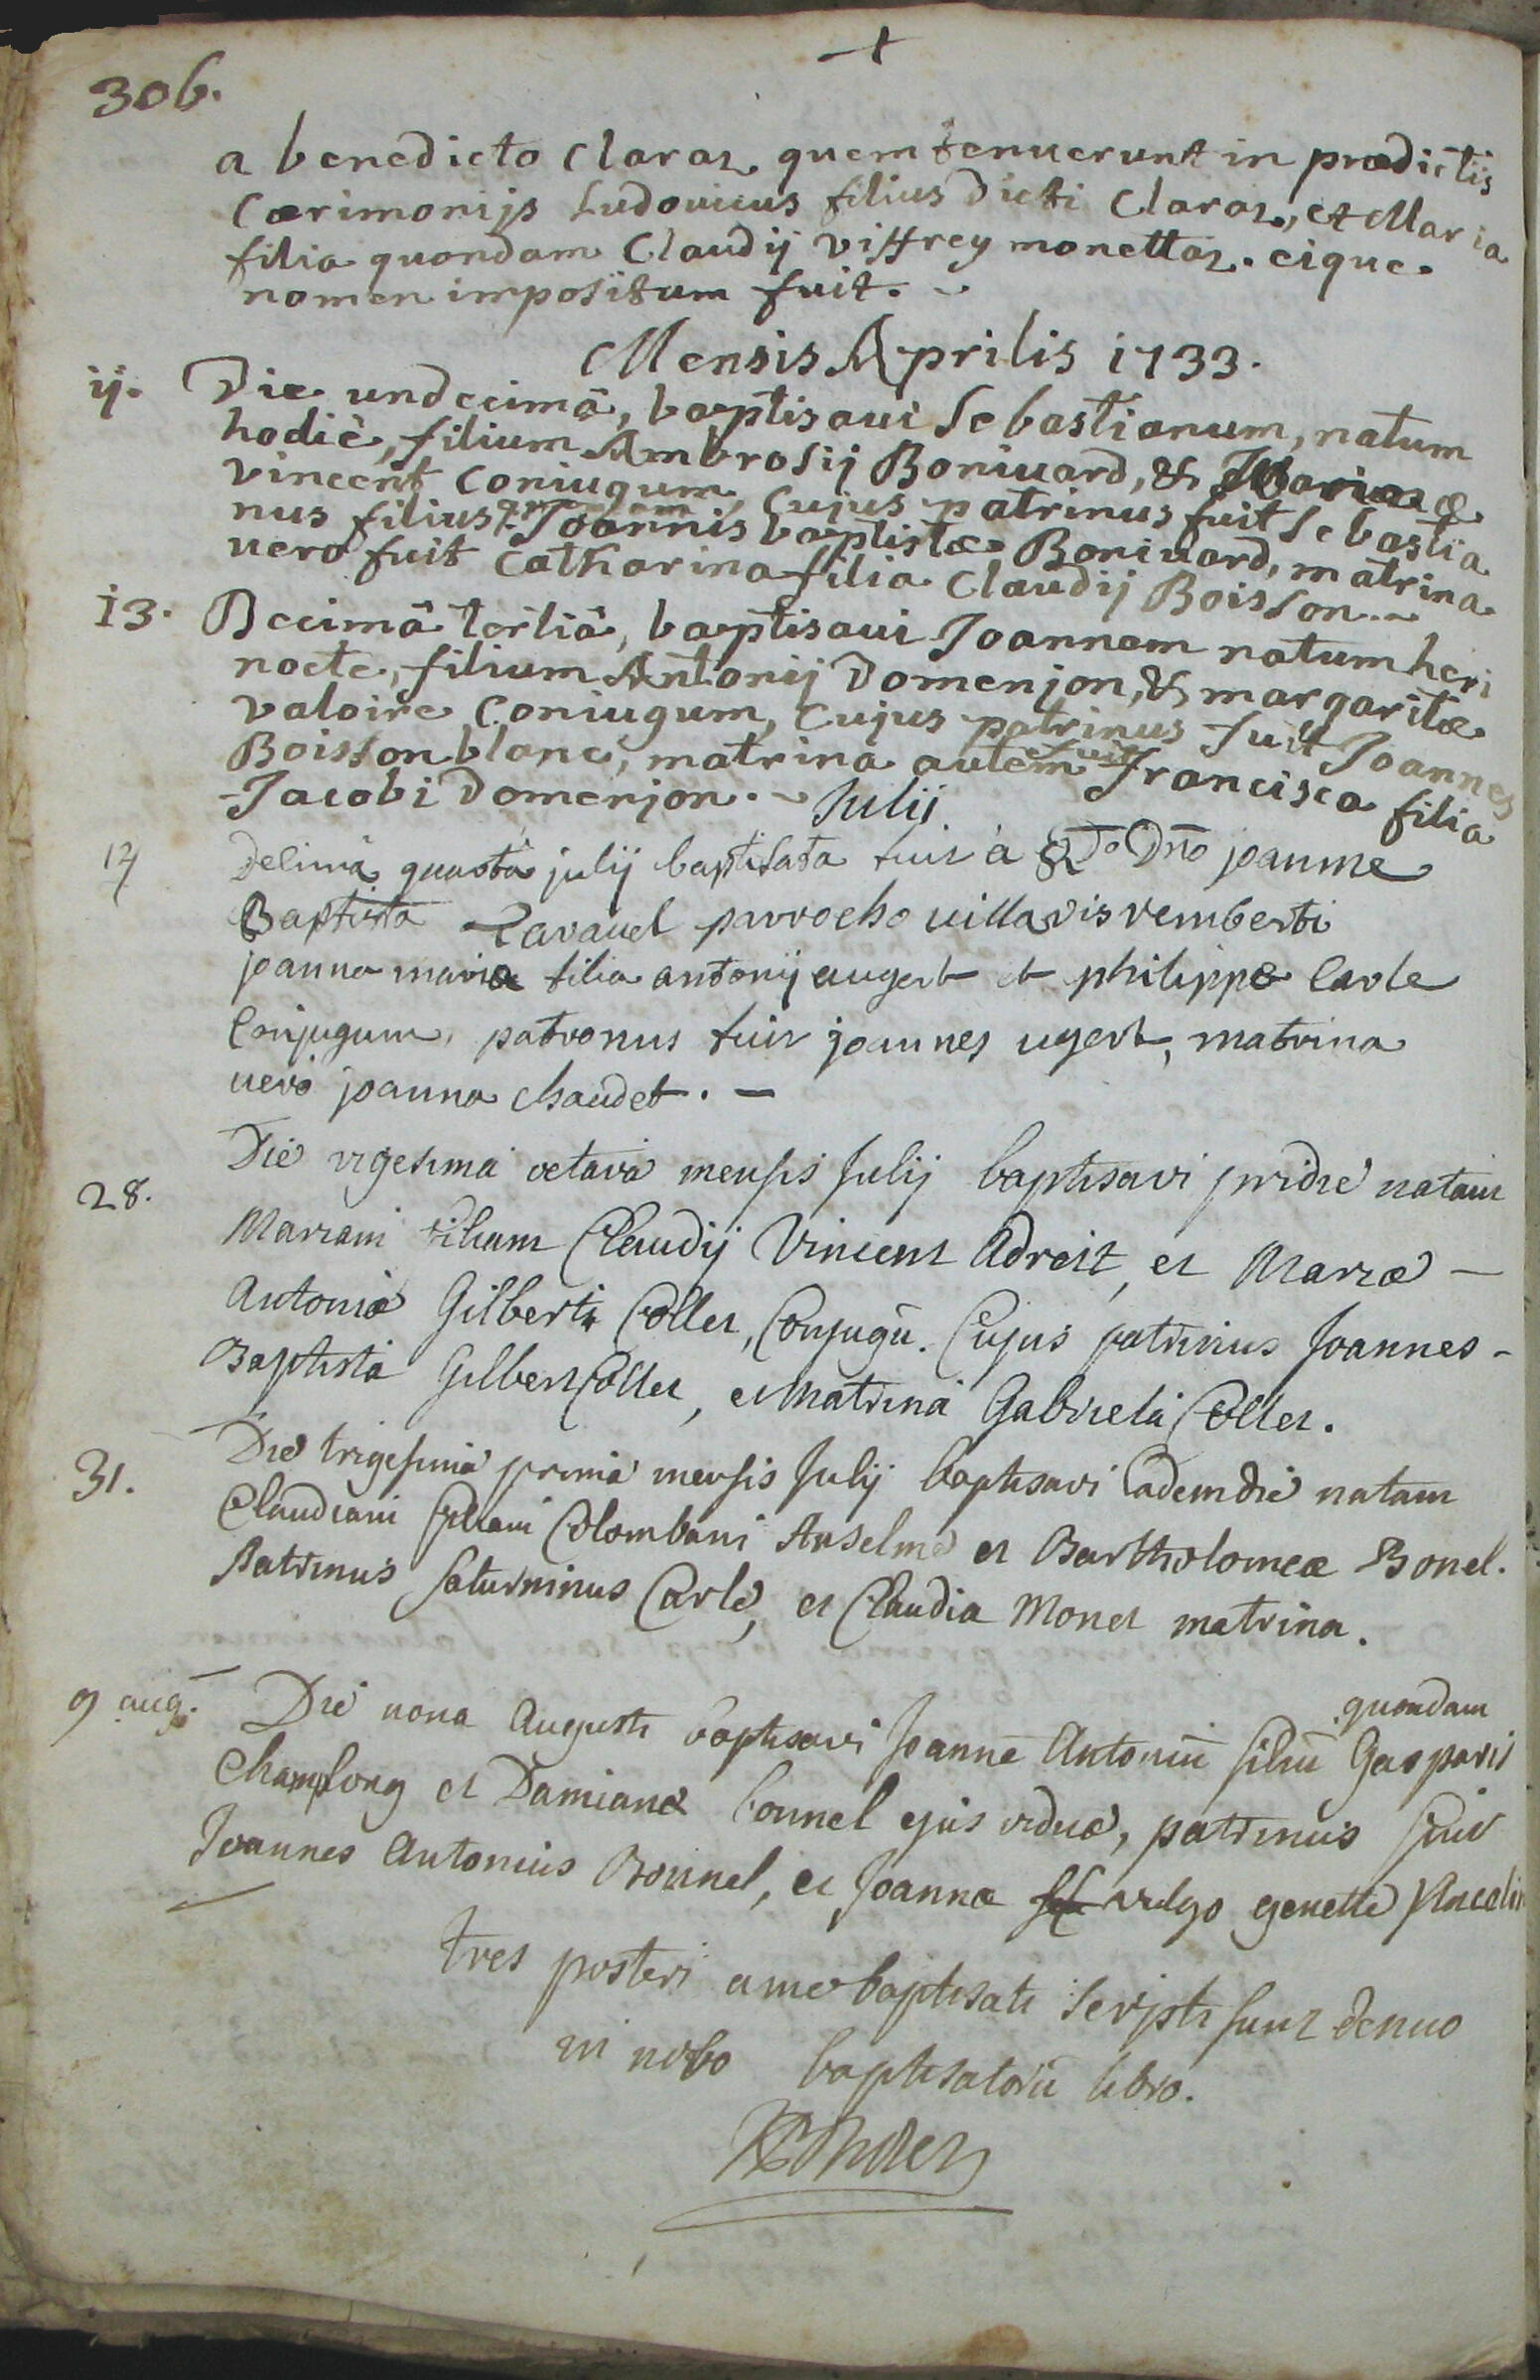 306.
a benedicto Claraz. quem tenuerunt in prædictis
Cærimonijs Ludovicus filius dicti Claraz, et Maria
filia quondam Claudij viffrey monettaz. eique
nomen impositum fuit.
Mensis Aprilis 1733.
ij. Die undecimâ, baptisaui Sebastianum, natum
hodiè, filium Ambrosij Boniuard, & Mariæ
vincent Coniugum, Cujus patrinus fuit Sebastia
nus filius quondam Joannis baptistæ Boniuard, matrina
uero fuit Catharina filia Claudij Boisson
13. Decimâ tertiâ, baptisaui Joannem natum heri
nocte, filium Antonij Domenjon, & margaritæ
Valoire Coniugum, Cujus patrinus fuit Joannes
Boisson blanc, matrina autem fuit Francisca filia
Jacobi Domenjon. Julij
14 Decima quarta julij baptisata fuit à Rdo Dno joanne
Baptista Ravauel parrocho uillaris remberti
joanna maria filia antonij augert et philippæ Carle
Conjugum, patronus fuit joannes ugert, matrina
uero joanna chaudet. -
28. Die vigesima octava mensis Julij baptisavi pridie natam
Mariam filiam Claudij Vincent Adreit, et Mariæ -
Antoniæ Gilberti Collet, Conjugū. Cujus patrinus Joannes -
Baptista Gilbert Collet, et Matrina Gabriela Collet.
31. Die trigesima prima mensis Julij baptisavi eadem die natam
Claudiam filiam Colombani Anselme et Bartholomeæ Bonel.
Patrinus Saturninus Carle, et Claudia Monet matrina.
9 aug. Die nona Augusti baptisavi Joannē Antoniū filiū quondam Gasparis
Champlong et Damianæ bonnel ejus viduæ, patrinus fuit
Joannes Antonius Bonnel, et Joanna vulgo genette Ancelin
tres posteri a me baptisati scripti sunt denuo
in novo baptisatorū libro.